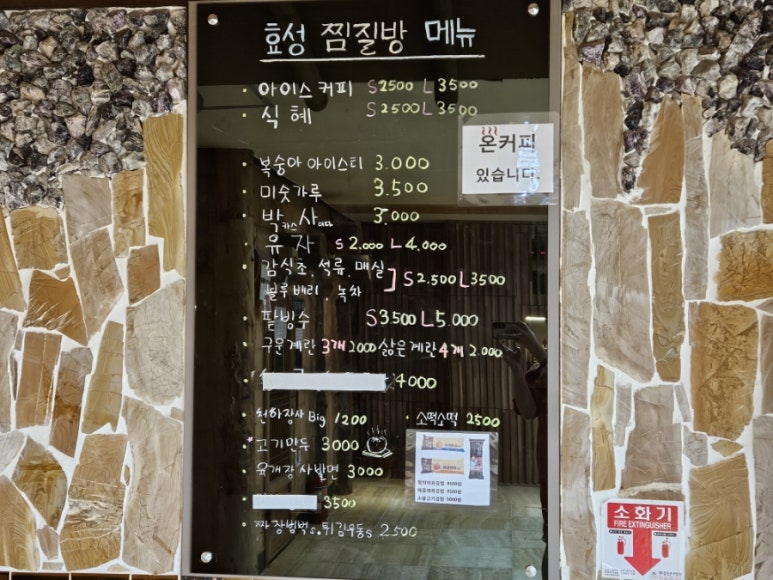 효성 찜질방 메뉴
· 아이스커피 S 2500 L 3500
· 식혜 S 2500 L 3500
온커피
있습니다
· 복숭아 아이스티 3.000
· 미숫가루 3.500
· 박카스 사이다 3.000
· 유자 S 2.000 L 4.000
· 감식초. 석류. 매실
블루베리. 녹차 ] S 2.500 L 3500
· 팥빙수 S 3.500 L 5.000
· 구운계란 3개 2000 삶은계란 4개 2.000
4000
· 천하장사 Big 1200
· 소떡소떡 2500
· 고기만두 3000
· 육개장 사발면 3000
3500
· 짜장범벅s. 튀김우동s 2500
소화기
FIRE EXTINGUISHER